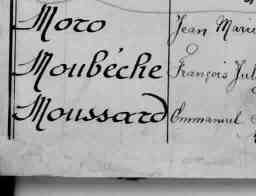 Moro Jean Marie
Moubéche François Jul
Moussard Emmanuel